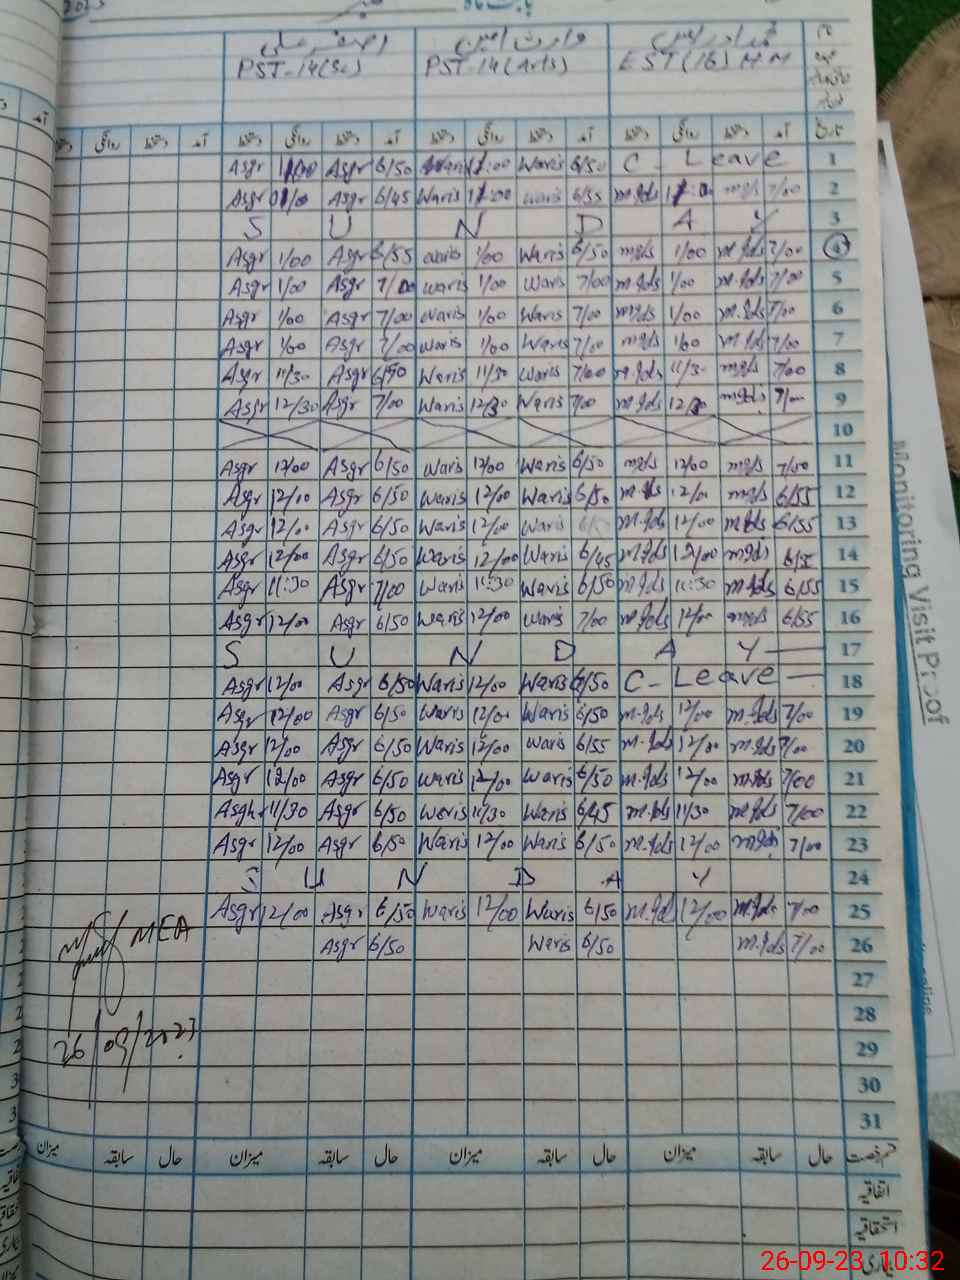 2023 بابت ماہ
اصغر علی وارث امین محمد ادریس
PST-14(Sc) PST-14(Arts) EST(16) H.M
آمد دستخط روانگی دستخط آمد دستخط روانگی دستخط آمد دستخط روانگی دستخط آمد تاریخ
Asgr 1/00 Asgr 6/50 Waris 11:00 Waris 6/50 C-Leave 1
Asgr Asgr 6/45 Waris Waris 6/55 m.Ids 7/00 2
S U N D A Y 3
Asgr 1/00 Asgr 6/55 Waris 1/00 Waris 6/50 m.Ids 1/00 m.Ids 7/00 4
Asgr 1/00 Asgr 7/00 Waris 1/00 Waris 7/00 m.Ids 1/00 m.Ids 7/00 5
Asgr 1/00 Asgr 7/00 Waris 1/00 Waris 7/00 m.Ids 1/00 m.Ids 7/00 6
Asgr 1/00 Asgr 7/00 Waris 1/00 Waris 7/00 m.Ids 1/00 m.Ids 7/00 7
Asgr 11/30 Asgr 6/50 Waris 11/30 Waris 7/00 m.Ids 11/30 m.Ids 7/00 8
Asgr 12/30 Asgr 7/00 Waris 12/30 Waris 7/00 m.Ids 12/30 m.Ids 7/00 9
10
Asgr 12/00 Asgr 6/50 Waris 12/00 Waris 6/50 m.Ids 12/00 m.Ids 7/00 11
Asgr 12/00 Asgr 6/50 Waris 12/00 Waris 6/50 m.Ids 12/00 m.Ids 6/55 12
Asgr 12/00 Asgr 6/50 Waris 12/00 Waris m.Ids 12/00 m.Ids 6/55 13
Asgr 12/00 Asgr 6/50 Waris 12/00 Waris 6/45 m.Ids 12/00 m.Ids 6/55 14
Asgr 11:30 Asgr 7/00 Waris 11:30 Waris 6/50 m.Ids 11:30 m.Ids 6/55 15
Asgr 12/00 Asgr 6/50 Waris 12/00 Waris 7/00 m.Ids 12/00 m.Ids 6/55 16
S U N D A Y 17
Asgr 12/00 Asgr 6/50 Waris 12/00 Waris 6/50 C-Leave 18
Asgr 12/00 Asgr 6/50 Waris 12/00 Waris 6/50 m.Ids 12/00 m.Ids 7/00 19
Asgr 12/00 Asgr 6/50 Waris 12/00 Waris 6/55 m.Ids 12/00 m.Ids 7/00 20
Asgr 12/00 Asgr 6/50 Waris 12/00 Waris 6/50 m.Ids 12/00 m.Ids 7/00 21
Asghr 11/30 Asgr 6/50 Waris 11/30 Waris 6/45 m.Ids 11/30 m.Ids 7/00 22
Asgr 12/00 Asgr 6/50 Waris 12/00 Waris 6/50 m.Ids 12/00 m.Ids 7/00 23
S U N D A Y 24
Asgr 12/00 Asgr 6/50 Waris 12/00 Waris 6/50 m.Ids 12/00 m.Ids 7/00 25
Asgr 6/50 Waris 6/50 m.Ids 7/00 26
MEA
27
28
26/09/2023
29
30
31
میزان سابقہ حال میزان سابقہ حال میزان سابقہ حال میزان سابقہ حال قسم رخصت
اتفاقیہ
استحقاقیہ
بیماری
Monitoring Visit Proof
26-09-23 10:32